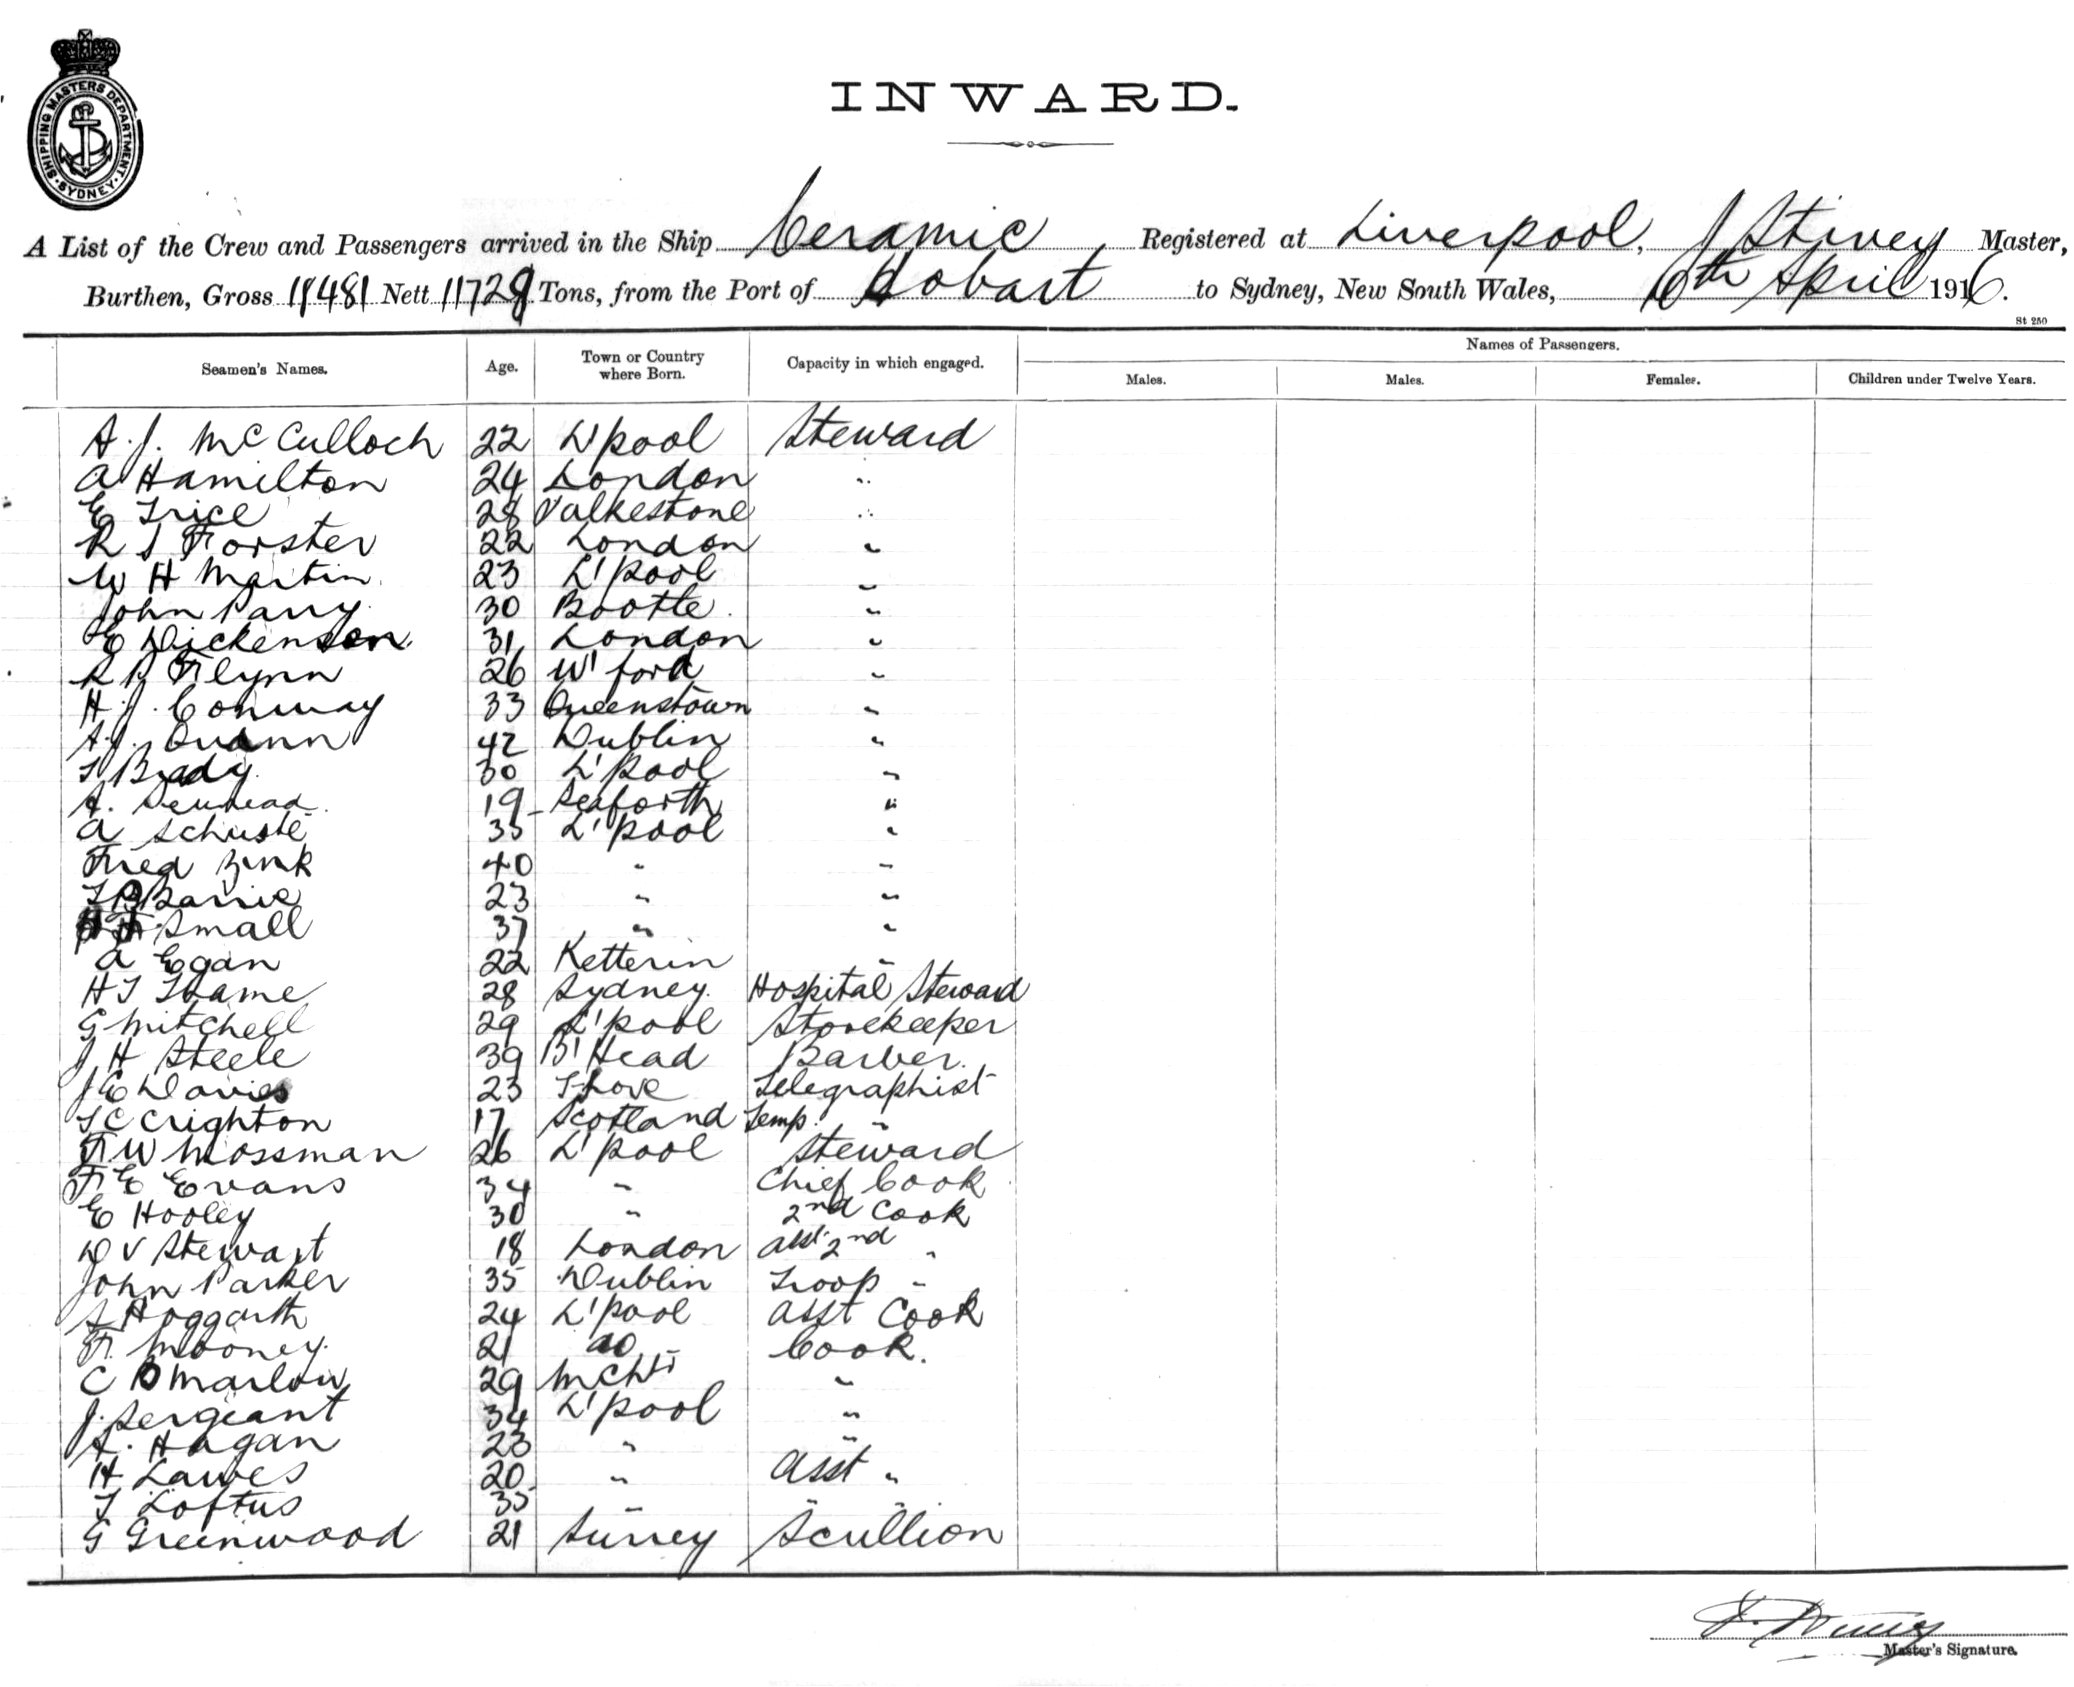 SHIPPING MASTERS DEPARTMENT. SYDNEY
INWARD.
A List of the Crew and Passengers arrived in the Ship Ceramic, Registered at Liverpool, J Stivey Master,
Burthen, Gross 18481 Nett 11729 Tons, from the Port of Hobart to Sydney, New South Wales, 6th April 1916.
St 250
Seamen's Names. Age. Town or Country where Born. Capacity in which engaged. Names of Passengers.
Males. Males. Females. Children under Twelve Years.
A. J. McCulloch 22 L'pool Steward
A Hamilton 24 London "
E Trice 28 Falkestone "
R S Forster 22 London "
W H Martin 23 L'pool "
John Parry 30 Bootle "
E Dickenson 31 London "
R P Flynn 26 W'ford "
H. J. Conway 33 Queenstown "
A. J. 42 Dublin "
T Brady 30 L'pool "
A. 19 Seaforth "
A Schuste 35 L'pool "
Fred Zink 40 " "
T B Barrie 23 " "
Small 37 " "
A Egan 22 Ketterin "
H T Thame 28 Sydney. Hospital Steward
G Mitchell 29 L'pool Storekeeper
J H Steele 39 B'Head Barber.
J E Davies 23 Hove Telegraphist
T C Crighton 17 Scotland Temp. "
F W Mossman 26 L'pool Steward
F E Evans 34 " Chief Cook
E Hooley 30 " 2nd Cook
D V Stewart 18 London asst 2nd "
John Parker 35 Dublin Troop "
Hoggarth 24 L'pool asst Cook
F. Mooney. 21 do Cook.
C B Marlow 29 "
J. Sergeant 34 L'pool "
A. Hagan 23 " "
H Lawes 20 " asst "
T Loftus 35 " " "
G Greenwood 21 Surrey Scullion
Master's Signature.